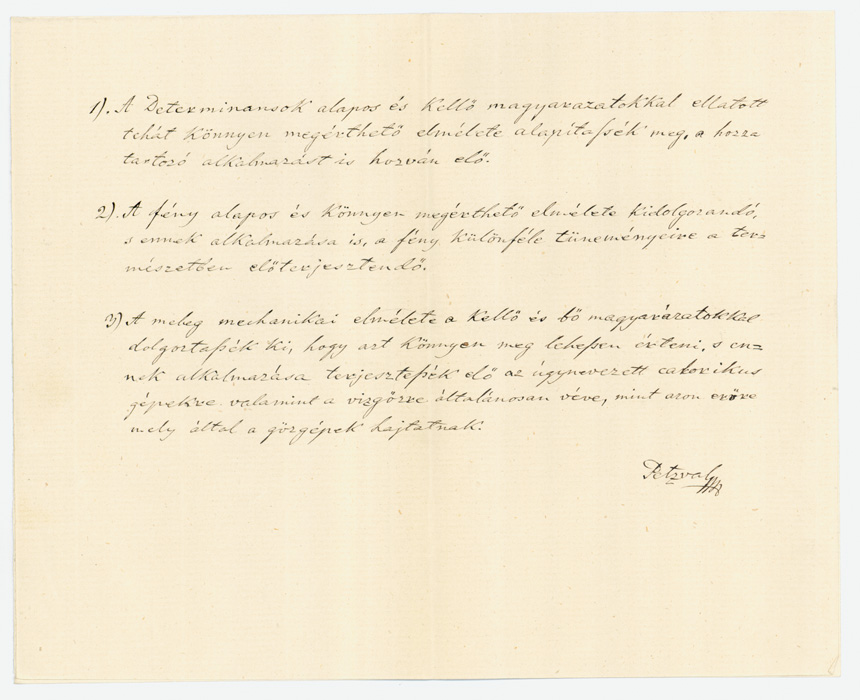 1). A Determinansok alapos és kellő magyarazatokkal ellatott
tehát könnyen megérthető elmélete alapítassék meg, a hozza
tartozó alkalmazást is hozván elő.
2). A fény alapos és könnyen megérthető elmélete kidolgozandó,
s ennek alkalmazása is, a fény különféle tüneményeire a ter=
mészetben előterjesztendő.
3) A meleg mechanikai elmélete a kellő és bő magyarázatokkal
dolgoztassék ki, hogy azt könnyen meg lehessen érteni, s en=
nek alkalmazása terjesztessék elő az úgynevezett calorikus
gépekre valamint a vizgőzre általánosan véve, mint azon erőre
mely által a gőzgépek hajtatnak.
Petzval